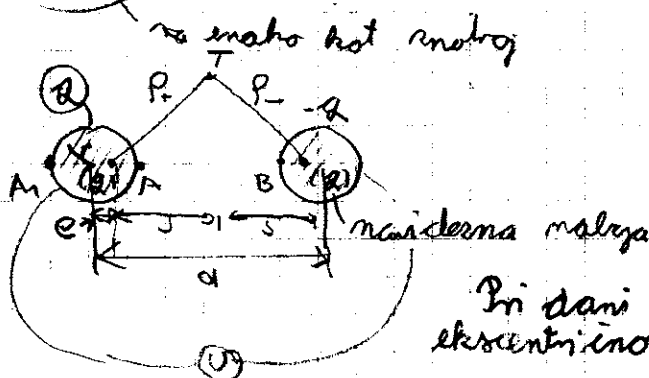 enako kot znotraj
T
Q ρ+ ρ- -Q
A1 (q) A B (q)
e s s navidezna naboja
d
Pri dani
U ekscentrično